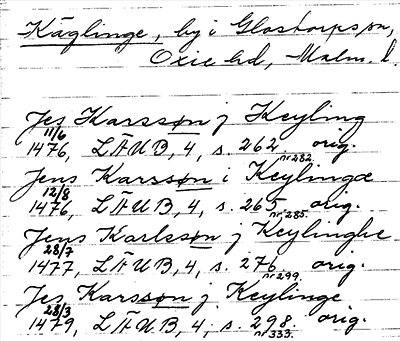 Käglinge, by i Glostorps sn,
Oxie hd, Malm. l.
Jes Karssøn j Keyling
11/6
1476, LÄUB, 4, s. 262. orig.
nr 282.
Jens Karssøn i Keylingæ
12/8
1476, LÄUB, 4, s. 265. orig.
nr 285.
Jens Karlsson j Keylinghe
28/7
1477, LÄUB, 4, s. 276. orig.
nr 299.
Jes Karssøn j Keylinge
28/3
1479, LÄUB, 4, s. 298. orig.
nr 333.